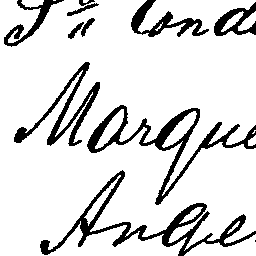 Sn Conda
Marque
Ange